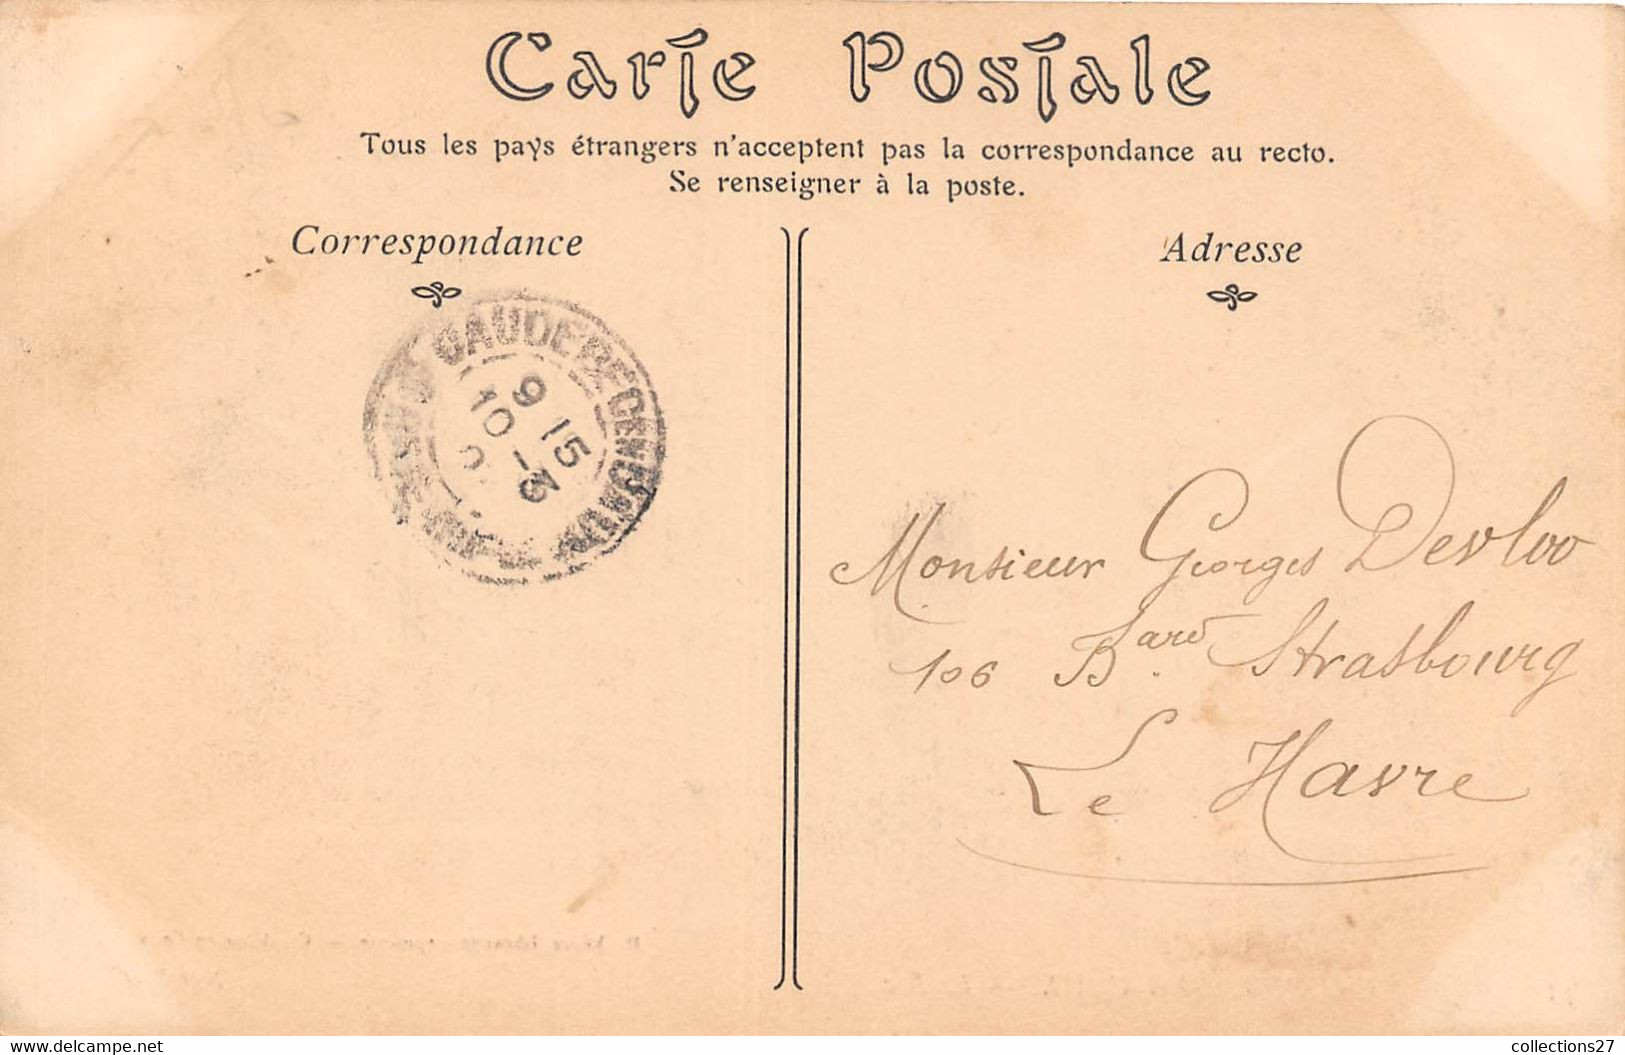 Carte Postale
Tous les pays étrangers n'acceptent pas la correspondance au recto.
Se renseigner à la poste.
Correspondance
Adresse
9 15
10 -3
Monsieur Georges Devloo
106 Bard Strasbourg
Le Havre
collections27
www.delcampe.net